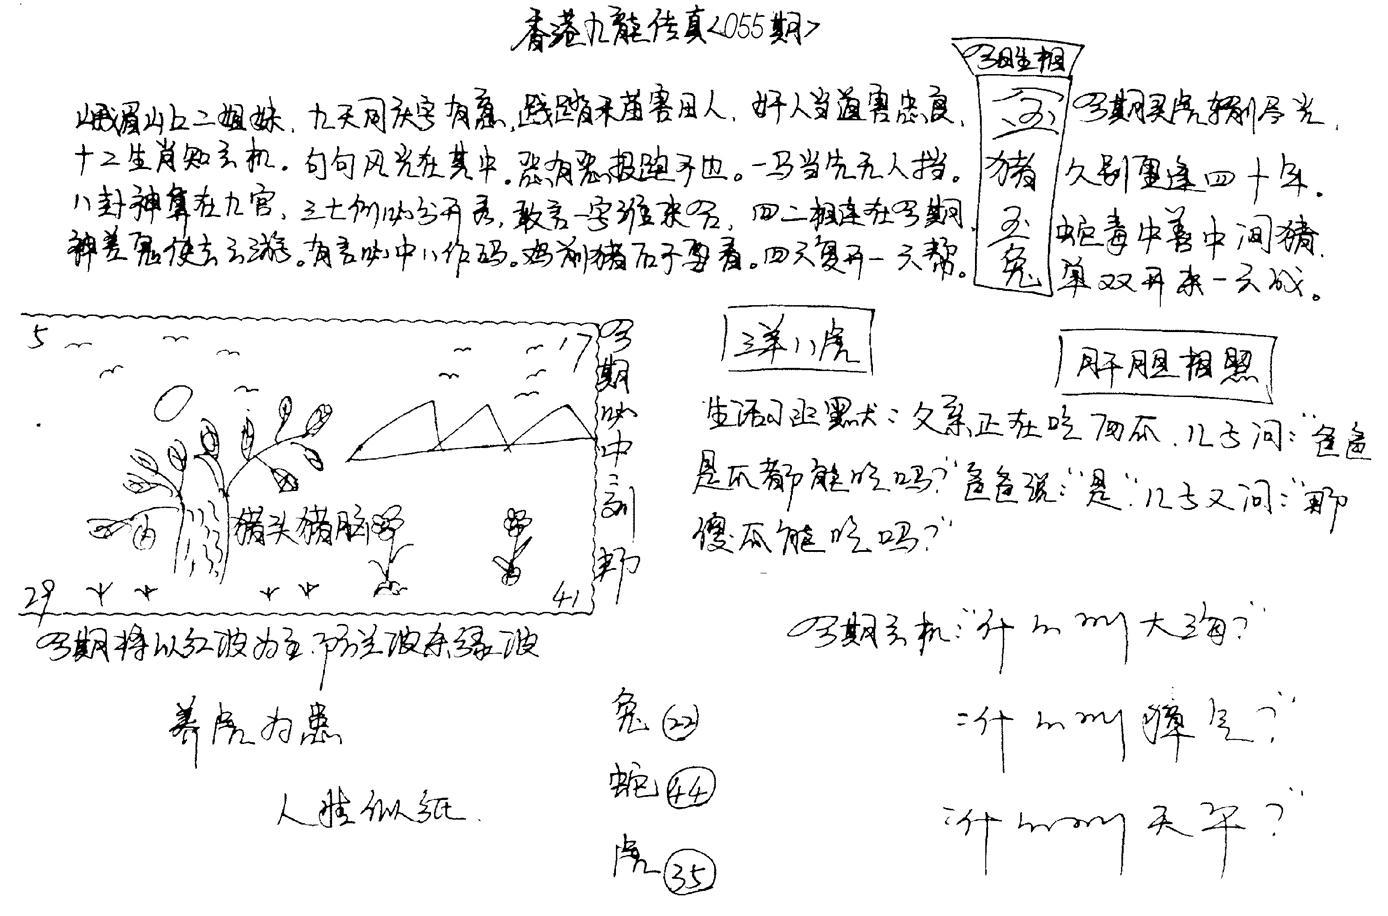 香港九龍传真<055期>
峨眉山上二姐妹，九天同庆字有意，践踏禾苗害田人，奸人当道害忠良，
十二生肖知玄机。句句风光在其中。恶有恶报跑不也。一马当先无人挡。
八卦神算在九宫，三七例必公开看，敢言一字谁来答，四二相连在今期，
神差鬼使去云游。有言必中八作码。鸡前猪后于粤看。四六复开一六帮。
今期生相
玄
猪
玉
兔
今期买虎
久别重逢四十年。
蛇毒中善中间猪，
单双开来一六战。
5
17
29
41
猪头猪脑
今期必中二刮那
今期将以红波为主，防兰波杀绿波
养虎为患
人生似纸
三羊八虎
肝胆相照
生活习 黑犬：父亲正在吃西瓜，儿子问："爸爸
是瓜都能吃吗？"爸爸说："是"，儿子又问："那
傻瓜能吃吗？"
今期玄机："什么叫大海？"
"什么叫獐气？"
"什么叫天平？"
兔 22
蛇 44
虎 35